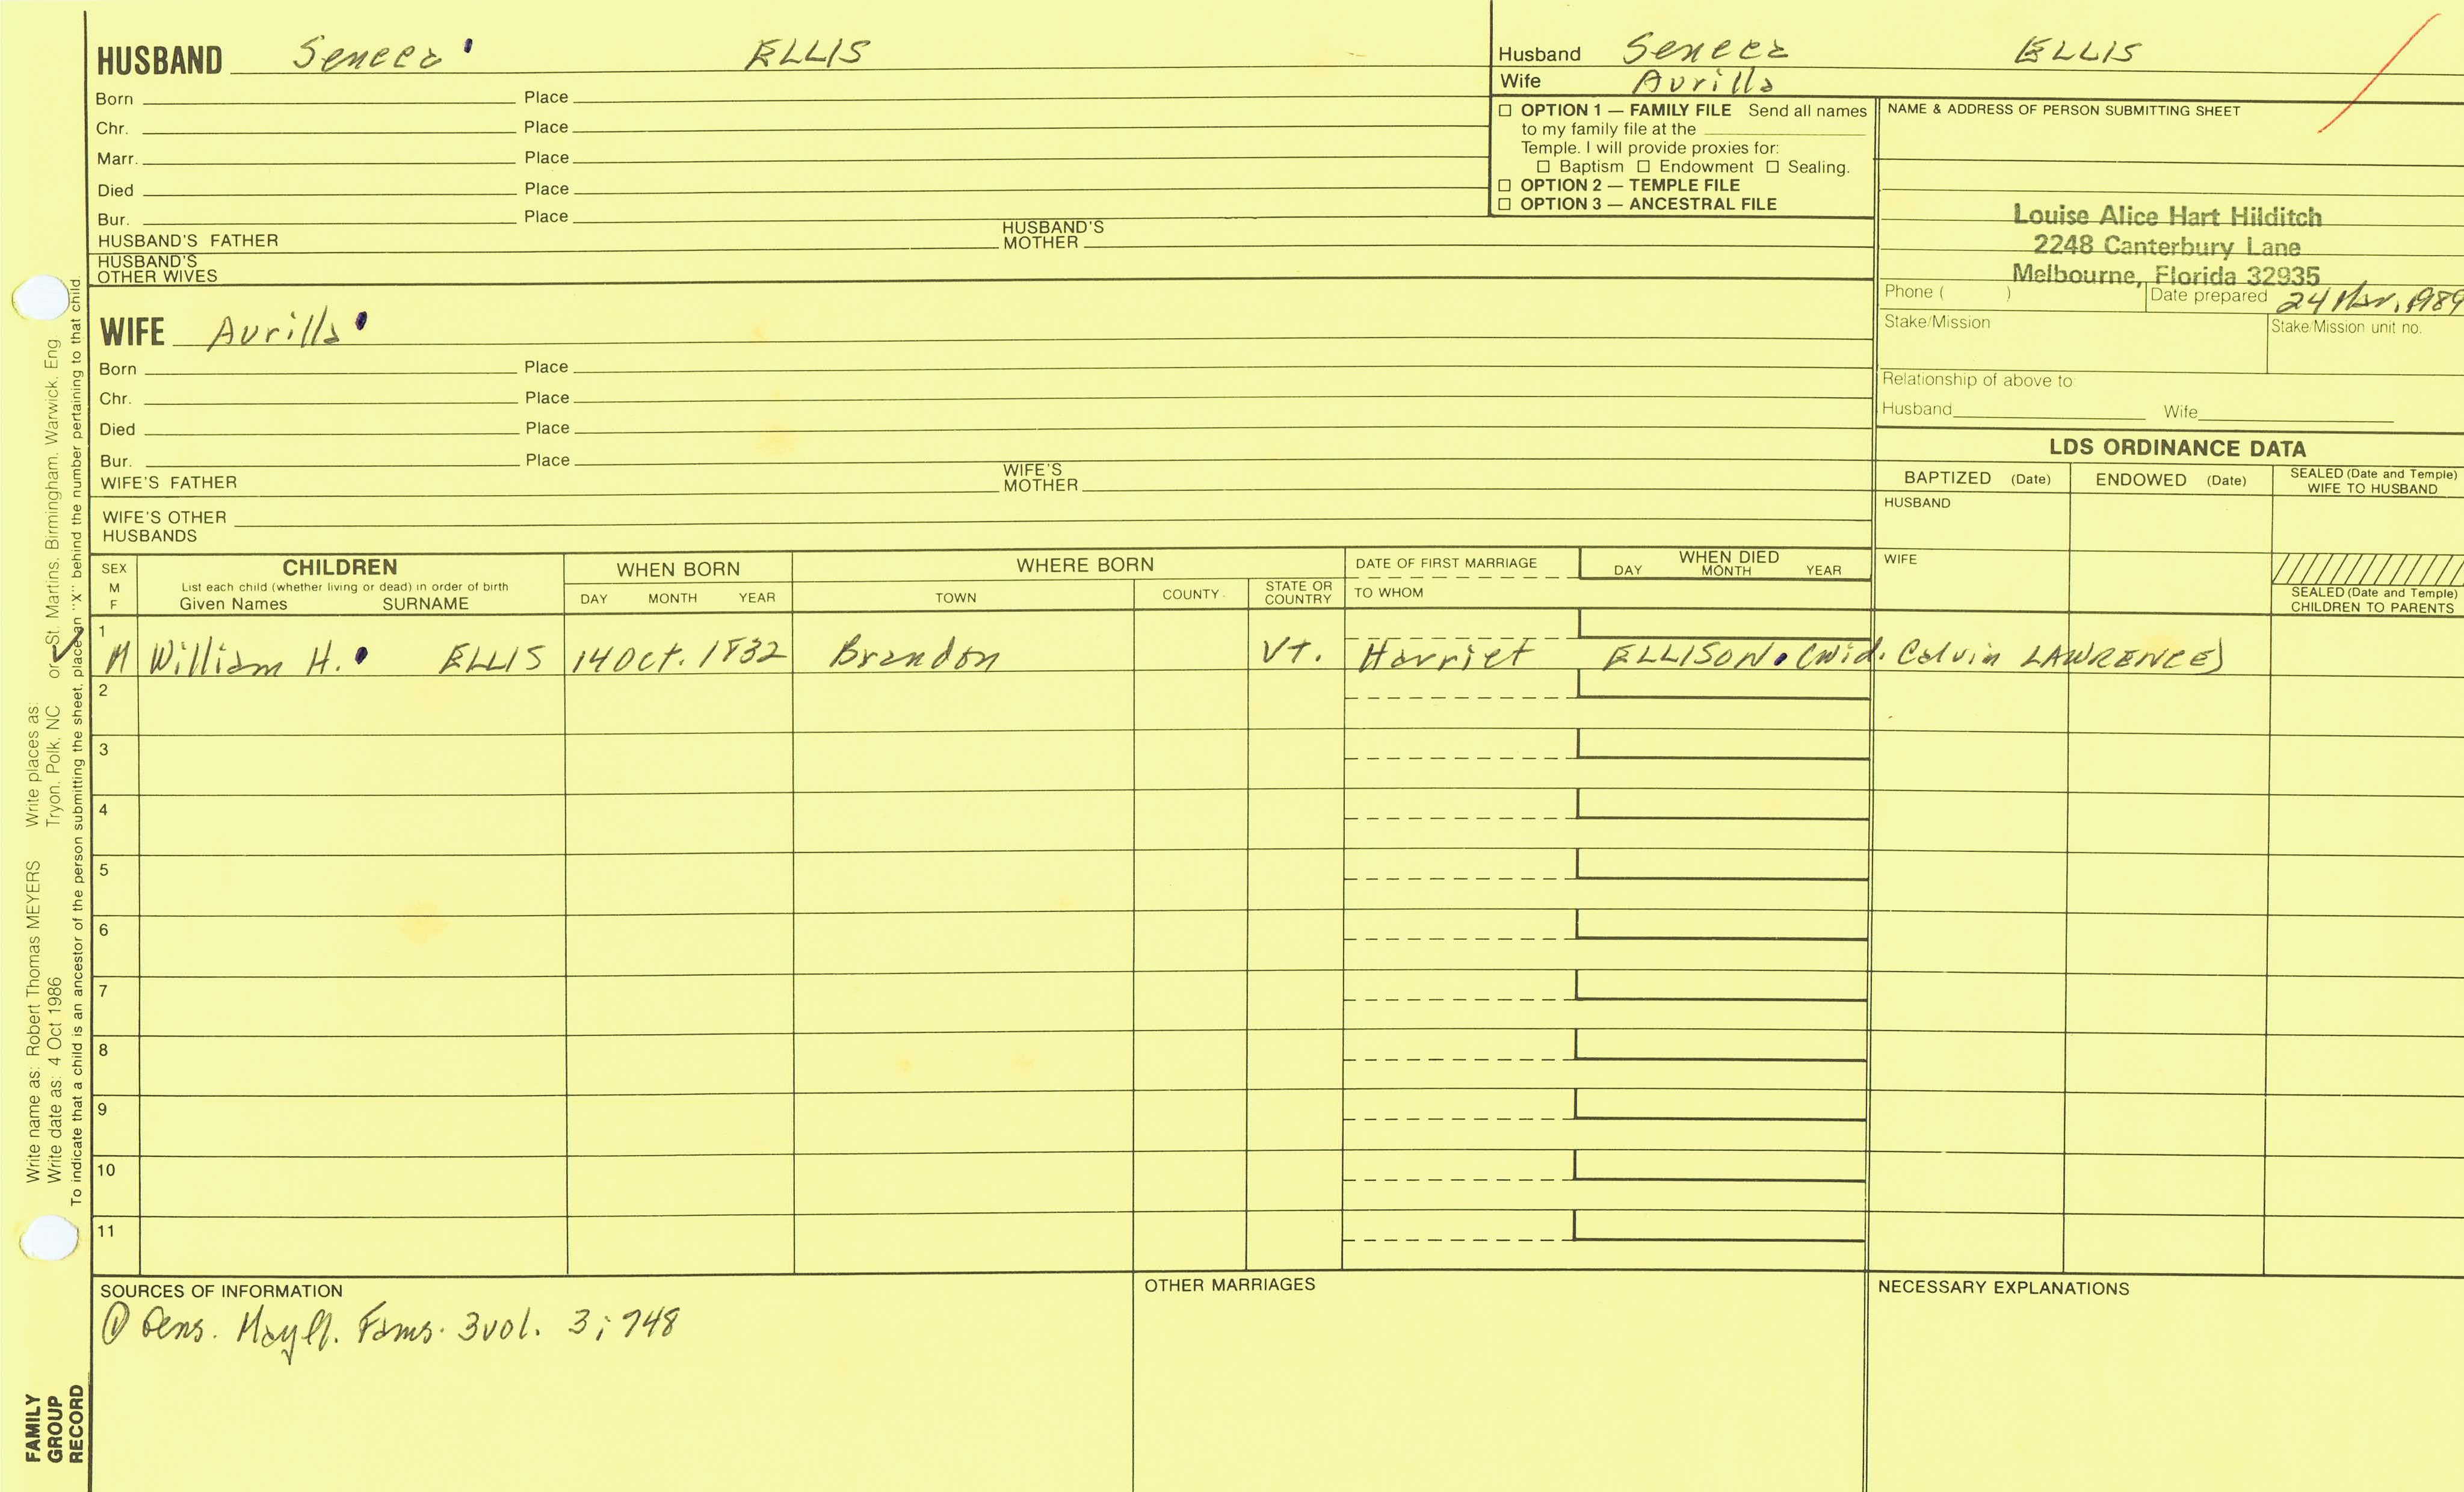 HUSBAND Seneca ELLIS
Born Place
Chr. Place
Marr. Place
Died Place
Bur. Place
HUSBAND'S FATHER HUSBAND'S MOTHER
HUSBAND'S OTHER WIVES
WIFE Avrilla
Born Place
Chr. Place
Died Place
Bur. Place
WIFE'S FATHER WIFE'S MOTHER
WIFE'S OTHER HUSBANDS
Husband Seneca ELLIS
Wife Avrilla
☐ OPTION 1 — FAMILY FILE Send all names
to my family file at the
Temple. I will provide proxies for:
☐ Baptism ☐ Endowment ☐ Sealing.
☐ OPTION 2 — TEMPLE FILE
☐ OPTION 3 — ANCESTRAL FILE
NAME & ADDRESS OF PERSON SUBMITTING SHEET
Louise Alice Hart Hilditch
2248 Canterbury Lane
Melbourne, Florida 32935
Phone ( ) Date prepared 24 Mar. 1989
Stake/Mission Stake/Mission unit no.
Relationship of above to:
Husband Wife
LDS ORDINANCE DATA
BAPTIZED (Date) ENDOWED (Date) SEALED (Date and Temple) WIFE TO HUSBAND
HUSBAND
WIFE
SEALED (Date and Temple) CHILDREN TO PARENTS
SEX M F
CHILDREN
List each child (whether living or dead) in order of birth
Given Names SURNAME
WHEN BORN
DAY MONTH YEAR
WHERE BORN
TOWN COUNTY STATE OR COUNTRY
DATE OF FIRST MARRIAGE
TO WHOM
WHEN DIED
DAY MONTH YEAR
1 M William H. ELLIS 14 Oct. 1832 Brandon Vt. Harriet ELLISON (wid. Calvin LAWRENCE)
2
3
4
5
6
7
8
9
10
11
SOURCES OF INFORMATION
① Gens. Mayfl. Fams. 3 vol. 3; 748
OTHER MARRIAGES
NECESSARY EXPLANATIONS
Write name as: Robert Thomas MEYERS Write places as:
Write date as: 4 Oct 1986 Tryon, Polk, NC or St. Martins, Birmingham, Warwick, Eng
To indicate that a child is an ancestor of the person submitting the sheet, place an "X" behind the number pertaining to that child.
FAMILY
GROUP
RECORD